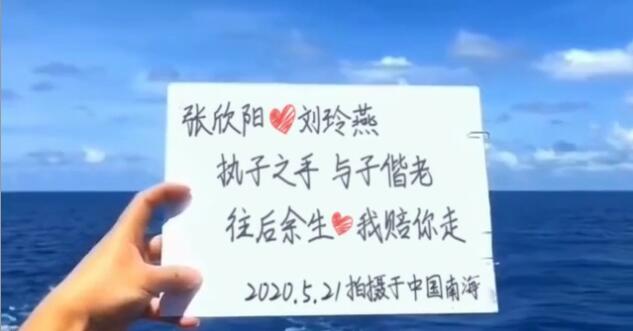 张欣阳❤刘玲燕
执子之手 与子偕老
往后余生❤我赔你走
2020.5.21拍摄于中国南海